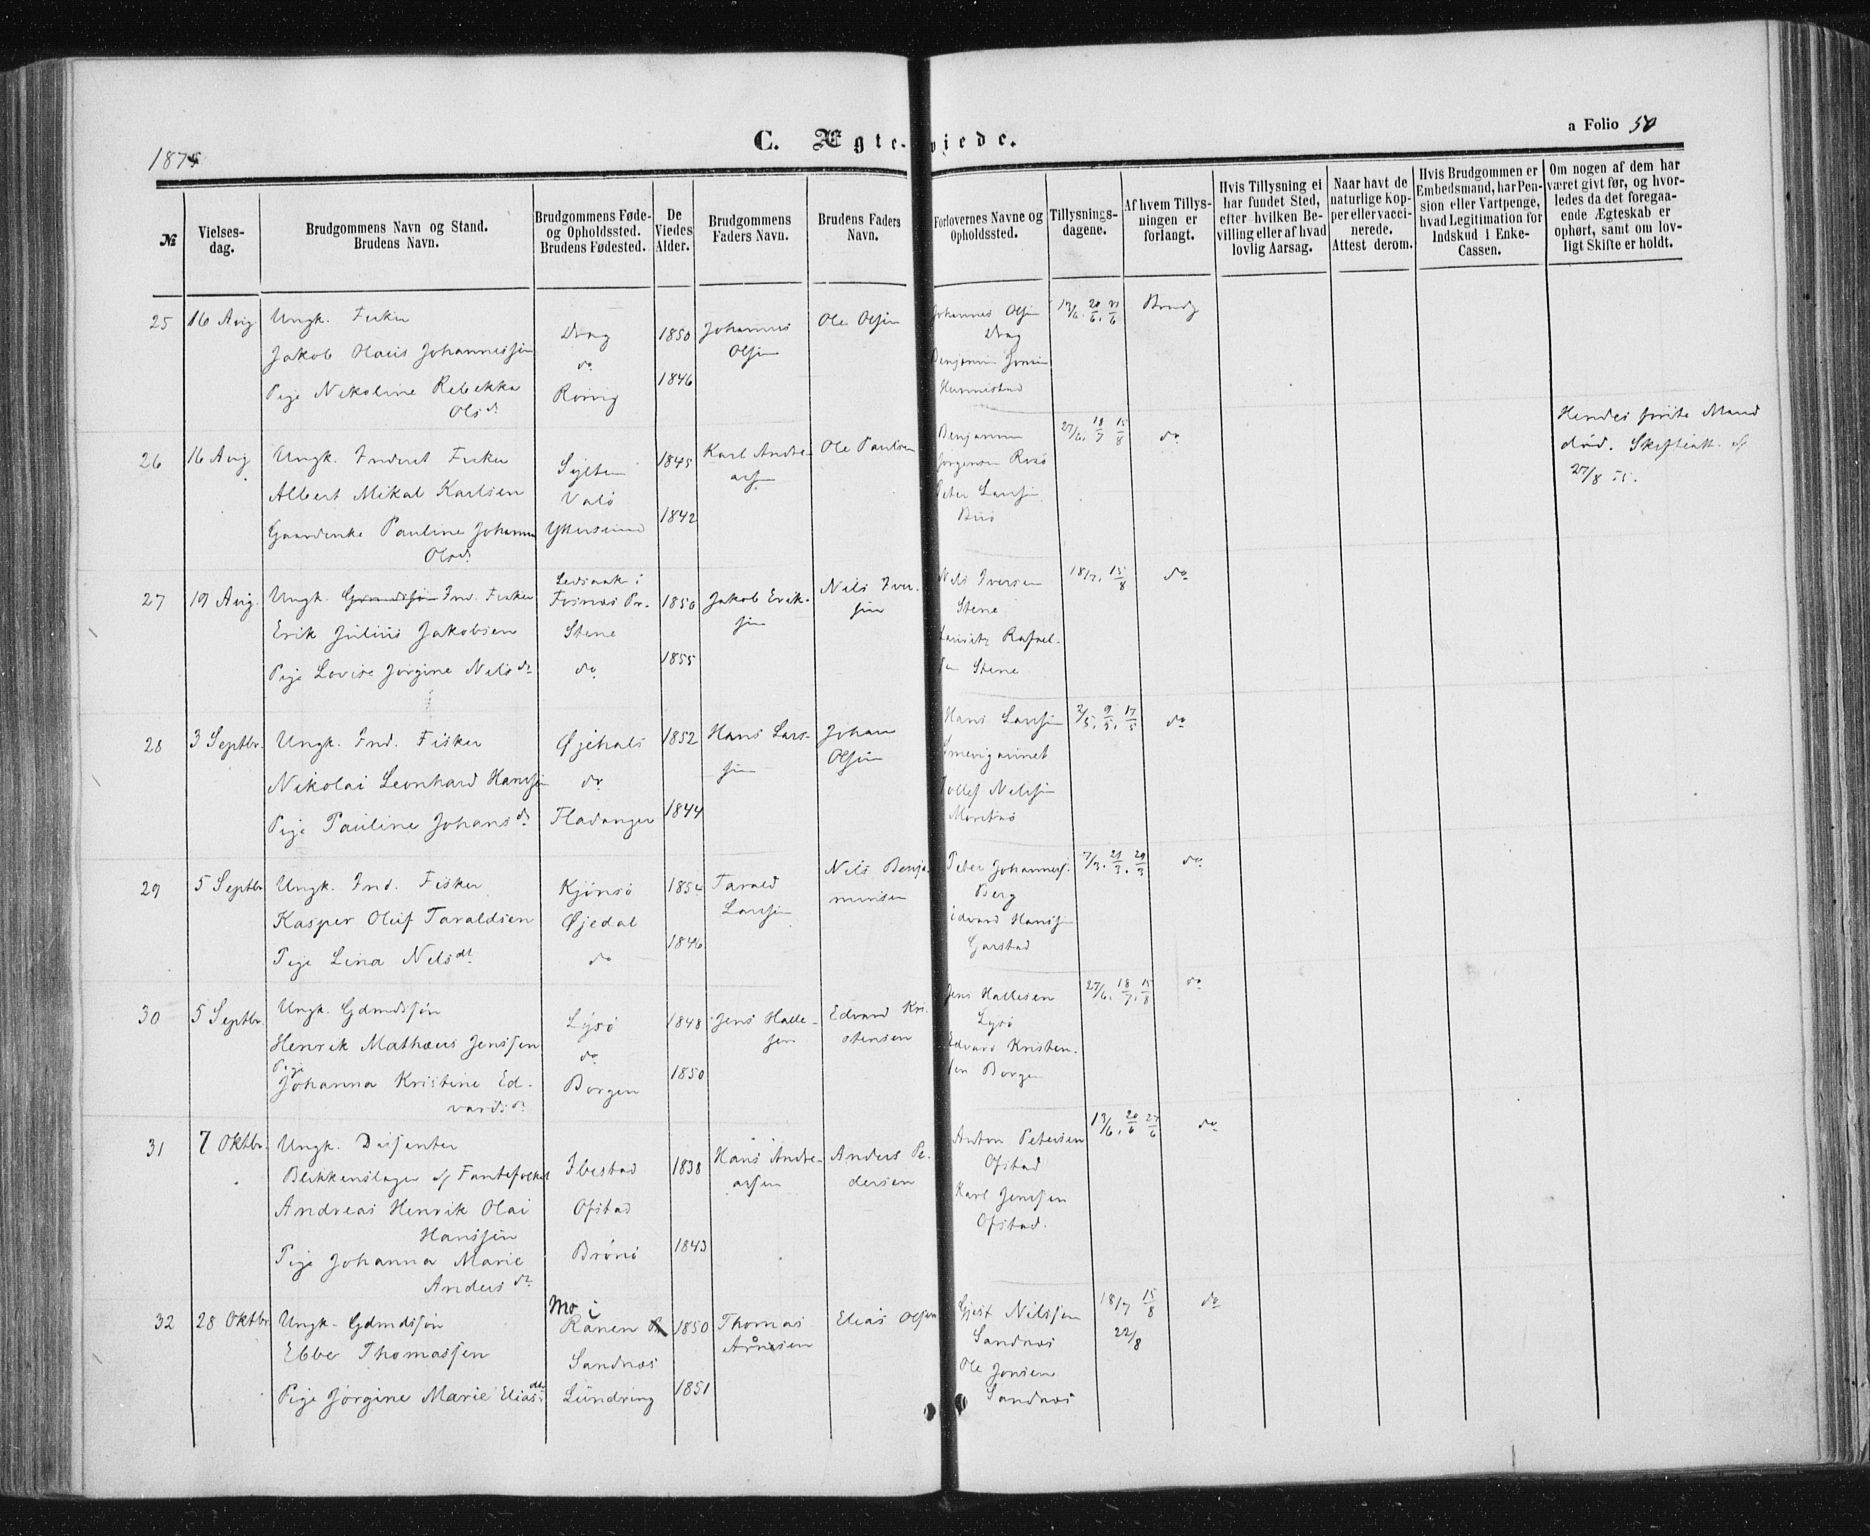 1875
C. Ægteviede.
a Folio 50
№
Vielses-
dag.
Brudgommens Navn og Stand.
Brudens Navn.
Brudgommens Føde-
og Opholdssted.
Brudens Fødested.
De
Viedes
Alder.
Brudgommens
Faders Navn.
Brudens Faders
Navn.
Forlovernes Navne og
Opholdssted.
Tillysnings-
dagene.
Af hvem Tillys-
ningen er
forlangt.
Hvis Tillysning ei
har fundet Sted,
efter hvilken Be-
villing eller af hvad
lovlig Aarsag.
Naar havt de
naturlige Kop-
per eller vacci-
nerede.
Attest derom.
Hvis Brudgommen er
Embedsmand, har Pen-
sion eller Vartpenge,
hvad Legitimation for
Indskud i Enke-
Cassen.
Om nogen af dem har
været givt før, og hvor-
ledes da det foregaa-
ende Ægteskab er
ophørt, samt om lov-
ligt Skifte er holdt.
25
16 Aug
Ungk. Fisker
Jakob Olaus Johannessen
Pige Nikoline Rebekka
Olsdr
Drag
do
Rørvig
1850
1846
Johannes
Olsen
Ole Olsen
Johannes Olsen
Drag
Benjamin Jonsen
13/6. 20/6. 27/6
Brudg
26
16 Aug
Ungk. Inderst Fisker
Albert Mikal Karlsen
Gaardenke Pauline Johanna
Olsdr
Sylten
Valø
1845
1842
Karl Andre-
asen
Ole Paulsen
Benjamin
Jørgensen
Peter Larsen
27/6. 18/7 15/8
do
Hendes første Mand
død. Skifteatt. af
27/8 75.
27
19 Aug.
Ungk. Gmdssøn Ind. Fisker
Erik Julius Jakobsen
Pige Lovise Jørgine Nilsdr
Fosnæs Pr.
Stene
do
1850
1855
Jakob Erik-
sen
Nils Iver-
sen
Nils Iversen
Stene
Lauritz Rafael-
sen Stene
18/7. 15/8
do
28
3 Septbr.
Ungk. Ind. Fisker
Nikolai Leonhard Hansen
Pige Pauline Johansdr
Øjehals
do
Fladanger
1852
1844
Hans Lars-
sen
Johan
Olsen
Hans Larsen
Tollef Nilsen
2/5. 9/5. 17/5
do
29
5 Septbr
Ungk. Ind. Fisker
Kasper Oluf Taraldsen
Pige Lina Nilsdr
Kjønsø
Øjedal
do
1854
1846
Tarald
Larsen
Nils Benja-
minsen
Peter Johannes.
Berg
Edvard Hansen
Garstad
7/3. 21/3. 29/3
do
30
5 Septbr.
Ungk. Gdmdssøn
Henrik Mathæus Jenssen
Pige
Johanna Kristine Ed-
vardsdr
Lysø
do
Borgen
1848
1850
Jens Halle-
sen
Edvard Kri-
stensen
Jens Hallesen
Lysø
Edvard Kristen-
sen Borgen
27/6. 18/7. 15/8
do
31
7 Oktbr.
Ungk. Dissenter
Blikkenslager af Fantefolket
Andreas Henrik Olai
Hanssen
Pige Johanna Marie
Andersdr
Ibestad
Ofstad
Brønø
1838
1843
Hans Andre-
assen
Anders Pe-
dersen
Anton Petersen
Ofstad
Karl Jenssen
Ofstad.
13/6. 20/6 27/6
do
32
28 Oktbr
Ungk. Gdmdssøn
Ebbe Thomassen
Pige Jørgine Marie Eliasdr
Mo i
Ranen
Sandnæs
Lundring
1850
1851
Thomas
Arnesen
Elias Olsen
Gjest Nilssen
Sandnæs
Ole Jonsen
Sandnæs
18/7 15/8
22/8
do